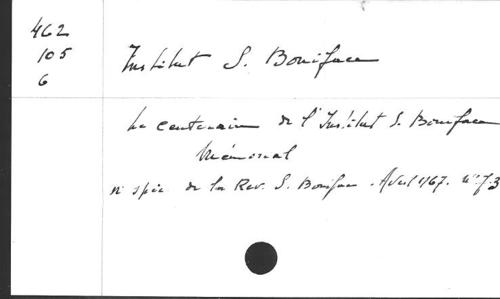 462
105
6
Institut S. Boniface
Le centenaire de l'Institut S. Boniface
Mémorial
n° spéc. de la Rev. S. Boniface. Avril 1967. n°